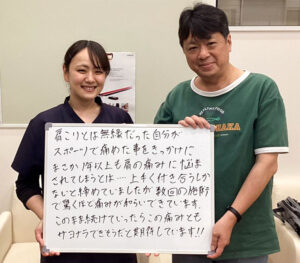 肩こりとは無縁だった自分が
スポーツで痛めた事をきっかけに
まさか1年以上も肩の痛みに悩ま
されてしまうとは…上手く付き合うしか
ないと諦めていましたが数回の施術
で驚くほど痛みが和らいできています。
このまま続けていったらこの痛みとも
サヨナラできそうだと期待しています!!